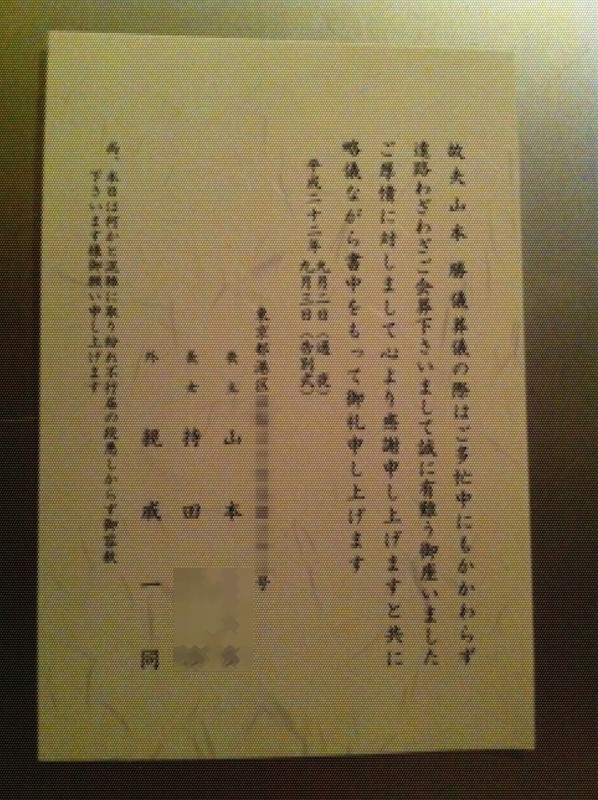 故夫 山本 勝 儀葬儀の際はご多忙中にもかかわらず
遠路わざわざご会葬下さいまして誠に有難う御座いました
ご厚情に対しまして心より感謝申し上げますと共に
略儀ながら書中をもって御礼申し上げます
平成二十二年 九月二日(通夜)
九月三日(告別式)
東京都港区 号
喪主 山本
長女 持田
外 親戚一同
尚、本日は何かと混雑に取り紛れ不行届の段悪しからず御容赦
下さいます様御願い申し上げます